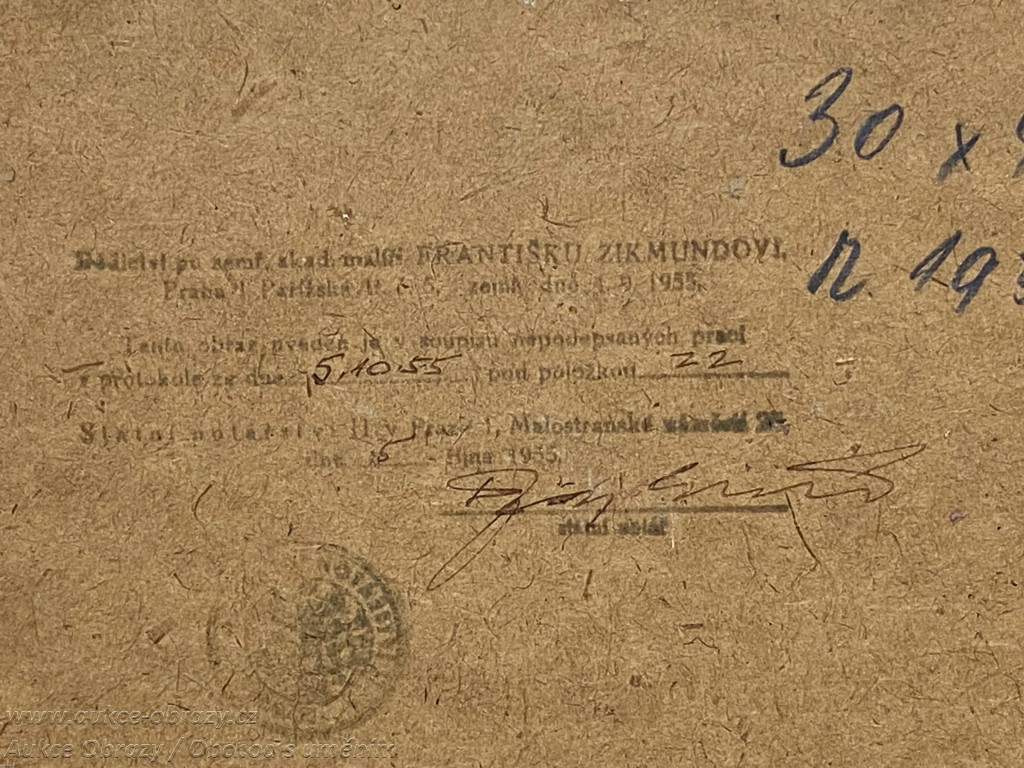 30 x
Dědictví po zemř. akad. malíři FRANTIŠKU ZIKMUNDOVI,
r. 193
Praha 1 Pařížská zemř. dne 1955.
Tento obraz uveden je v soupisu nepodepsaných prací
v protokole ze dne 5.10.55 pod položkou 22
Státní notářství II v Praze 1, Malostranské náměstí
dne 5 října 1955.
státní notář
www.aukce-obrazy.cz
Aukce Obrazy / Obchod s uměním